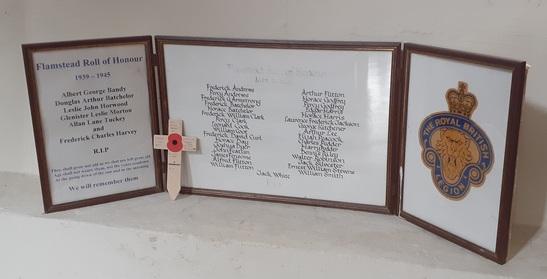 Flamstead Roll of Honour
1939 - 1945
Albert George Bandy
Douglas Arthur Batchelor
Leslie John Horwood
Glenister Leslie Morton
Allan Lane Tuckey
and
Frederick Charles Harvey
R.I.P
They shall grow not old as we that are left grow old
Age shall not weary them, nor the years condemn
At the going down of the sun and in the morning
We will remember them
Flamstead Roll of Honour
Frederick Andrews
Percy Andrews
Frederick G Armstrong
Frederick Batchelor
Horace Batchelor
Frederick William Clark
Percy Clark
Donald Cook
William Cook
Frederick David Cust
Horace Day
Joshua Dyer
John Feattin
James Fensome
Alfred Flitton
William Flitton
Arthur Flitton
Horace Godfrey
Percy Godfrey
Horace Harris
Laurence Frederick Jackson
George Kitchener
Arthur Lee
Charles Pedder
Walter Robinson
Jack Silvester
Ernest William Stevens
William Smith
Jack White
THE ROYAL BRITISH
LEGION